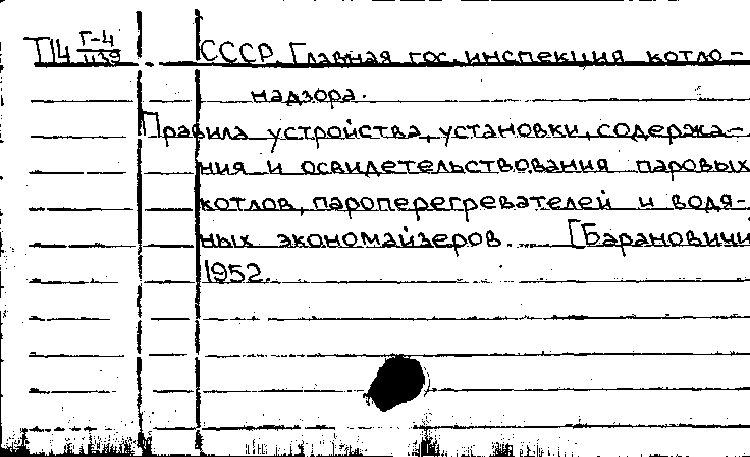 Т14 Г-4/1139 СССР. Главная гос. инспекция котло-
надзора.
Правила устройства, установки, содержа-
ния и освидетельствования паровых
котлов, пароперегревателей и водя-
ных экономайзеров. [Барановичи
1952.